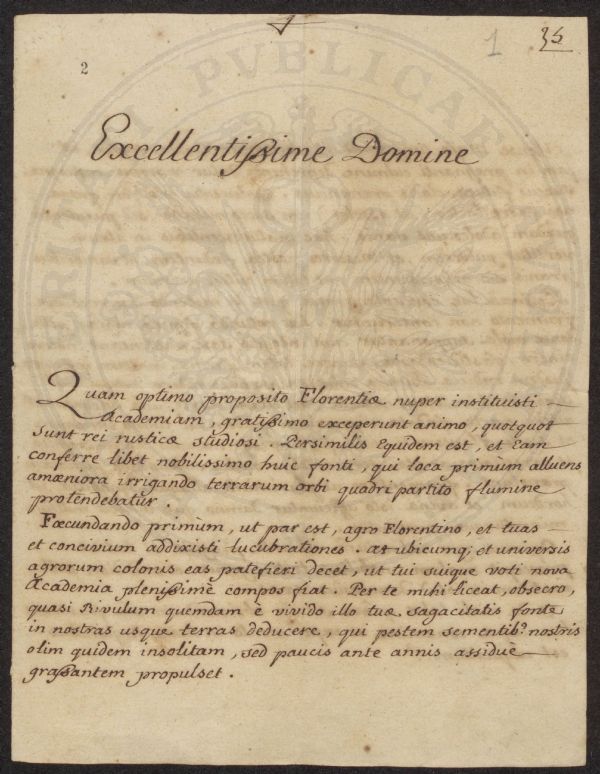 1 35
2
Excellentissime Domine
Quam optimo proposito Florentiæ nuper instituisti
Academiam, gratissimo exceperunt animo, quotquot
sunt rei rusticæ studiosi. Persimilis equidem est, et Eam
conferre libet nobilissimo huic fonti, qui loca primum alluens
amœniora irrigando terrarum orbi quadripartito flumine
protendebatur.
Fœcundando primùm, ut par est, agro Florentino, et tuas
et concivium addixisti lucubrationes. at ubicumq; et universis
agrorum colonis eas patefieri decet, ut tui suique voti nova
Academia plenissimè compos fiat. Per te mihi liceat, obsecro,
quasi Rivulum quemdam è vivido illo tuæ sagacitatis fonte
in nostras usque terras deducere, qui pestem sementib.ˢ nostris
olim quidem insolitam, sed paucis ante annis assiduè
grassantem propulset.